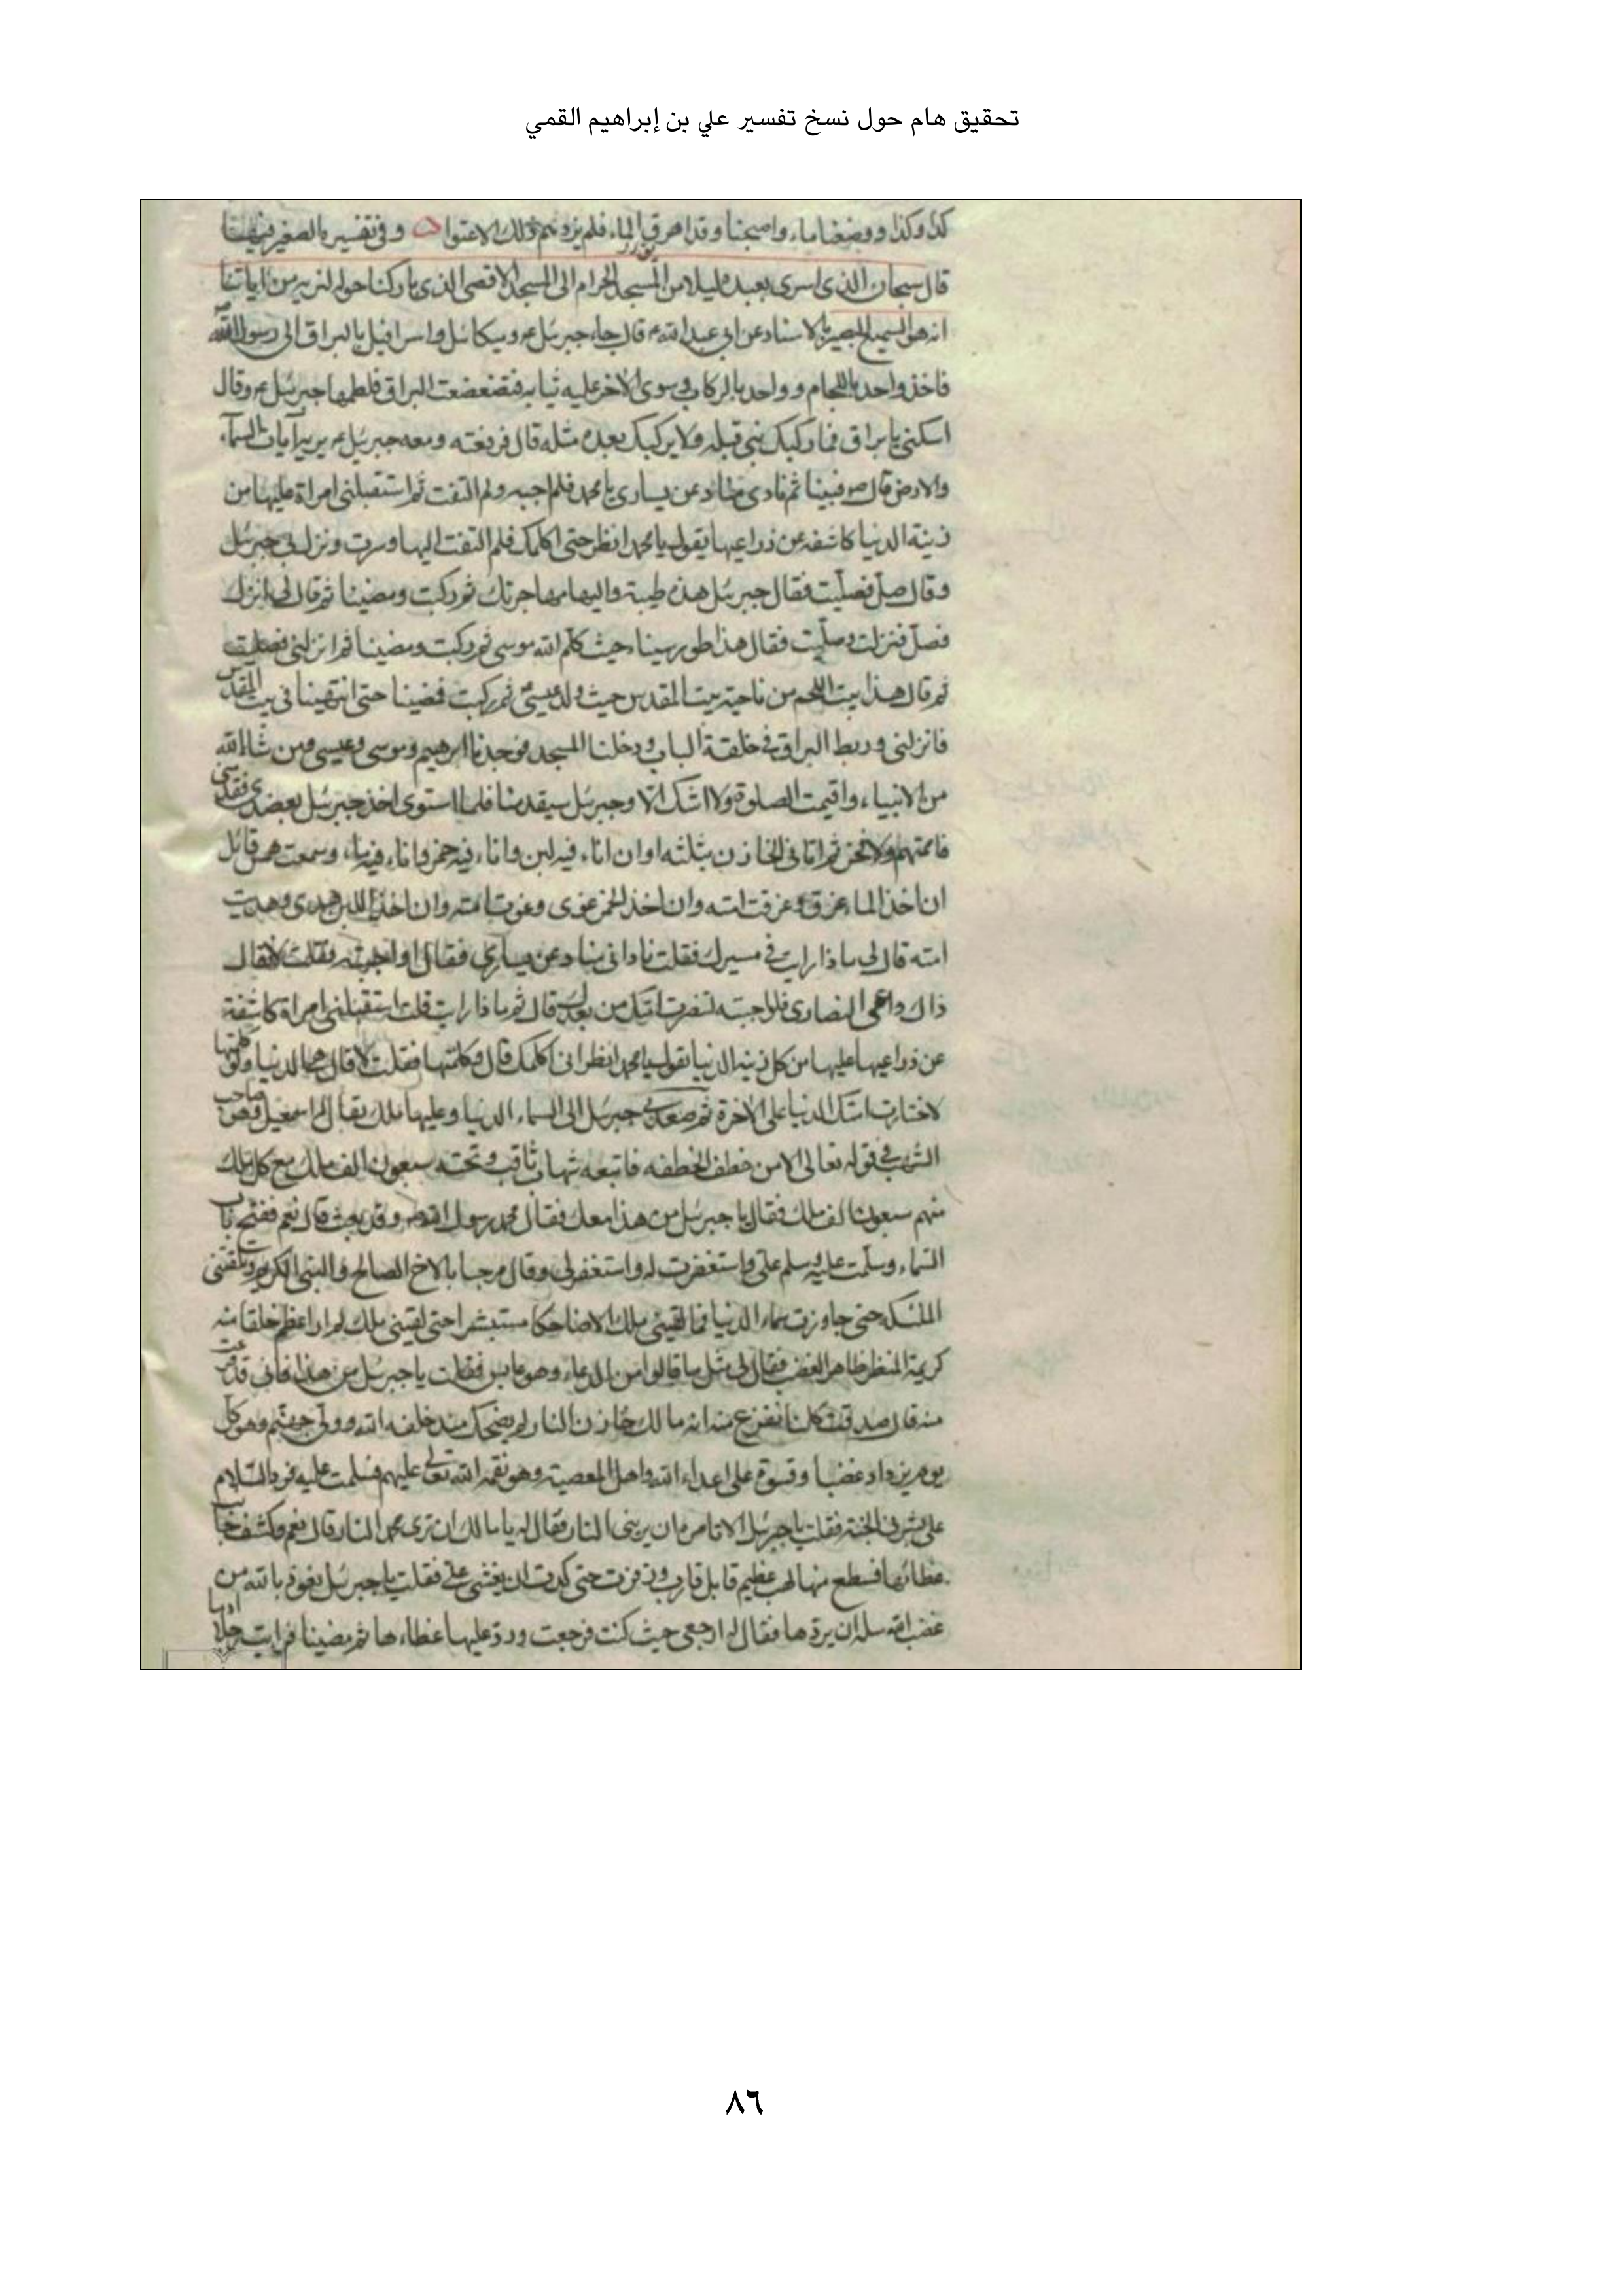 تحقيق هام حول نسخ تفسير علي بن إبراهيم القمي
كذا وكذا ووضعنا ماء واصبحنا وقد اهرق الماء فلم يزدهم ذلك الا عتوا وفي تفسير الصغير
قال سبحان الذي اسرى بعبده ليلا من المسجد الحرام الى المسجد الاقصى الذي باركنا حوله لنريه من اياتنا
انه هو السميع البصير بالاسناد عن ابي عبد الله ع قال جاء جبرئيل ع وميكائل واسرافيل بالبراق الى رسول الله
فاخذ واحد باللجام وواحد بالركاب وسوى الاخر عليه ثيابه فتضعضعت البراق فلطمها جبرئيل ع وقال
اسكني يا براق فما ركبك نبي قبله ولا يركبك بعده مثله قال فرفعته ومعه جبرئيل ع يريه آيات السماء
والارض قال ص فبينا ثم نادى مناد عن يساري يا محمد فلم اجبه ولم التفت ثم استقبلني امراة عليها من
زينة الدنيا كاشفه عن ذراعيها يقول يا محمد انظر حتى اكلمك فلم التفت اليها وسرت ونزل بي جبرئيل
وقال صل فصليت فقال جبرئيل هذه طيبة واليها مهاجرتك ثم ركبت ومضينا ثم قال لي انزل
فصل فنزلت وصليت فقال هذا طور سيناء حيث كلم الله موسى ثم ركبت ومضينا ثم انزلني فصليت
ثم قال هذا بيت اللحم من ناحية بيت المقدس حيث ولد عيسى ثم ركبت فمضينا حتى انتهينا في بيت المقدس
فانزلني وربط البراق في حلقة الباب ودخلنا المسجد فوجدنا ابرهيم وموسى وعيسى ومن شاء الله
من الانبياء واقيمت الصلوة ولا اشك الا وجبرئيل سيقدمنا فلما استوى اخذ جبرئيل بعضدي فقدمني
فاممتهم ولا فخر ثم اتاني الخازن بثلثه اوان اناء فيه لبن واناء فيه خمر واناء فيه ماء وسمعت قائل
ان اخذ الماء غرق وغرقت امته وان اخذ الخمر غوى وغوت امته وان اخذ اللبن هدى وهديت
امته قال لي ماذا رايت في مسيرك فقلت ناداني مناد عن يساري فقال او اجبته فقلت لا فقال
ذاك داعي النصارى فلو اجبته لتنصرت امتك من بعدك قال ثم ماذا رايت قلت استقبلني امراة كاشفة
عن ذراعيها عليها من كل زينه الدنيا تقول يا محمد انظر اني اكلمك قال فكلمتها فقلت لا قال الدنيا ولو كلمتها
لاختارت امتك الدنيا على الاخرة ثم صعد بي جبرئيل الى السماء الدنيا وعليها ملك يقال له اسمعيل وهو صاحب
الشهب في قوله تعالى الا من خطف الخطفه فاتبعه شهاب ثاقب وتحته سبعون الف ملك مع كل ملك
منهم سبعون الف ملك فقال يا جبرئيل من هذا معك فقال محمد رسول الله وقد بعث قال نعم ففتح باب
السماء وسلمت عليه وسلم علي واستغفرت له واستغفر لي وقال مرحبا بالاخ الصالح والنبي الكريم وتلقتني
الملئكه حتى جاوزت سماء الدنيا فما لقيني ملك الا ضاحكا مستبشرا حتى لقيني ملك لم ار اعظم خلقا منه
كريه المنظر ظاهر الغضب فقال لي مثل ما قالوا من الدعاء وهو عابس فقلت يا جبرئيل من هذا فاني قد فزعت
منه قال صدقت كلنا نفزع منه انه مالك خازن النار لم يضحك منذ خلقه الله وولي جهنم وهو كل
يوم يزداد غضبا وقسوة على اعداء الله واهل المعصية وهو نقمه الله تعالى عليهم فسلمت عليه فرد السلام
علي وبشرني الجنة فقلت يا جبرئيل الا تامره ان يريني النار فقال له يا مالك ان ترى محمد النار قال نعم وكشف
غطائها فسطع منها لهب عظيم فزت حتى كدت ان يغشى علي فقلت يا جبرئيل نعوذ بالله من
غضب الله سله ان يردها فقال له ارجعي حيث كنت فرجعت ورد عليها غطاءها ثم مضينا فرايت رجلا
٨٦